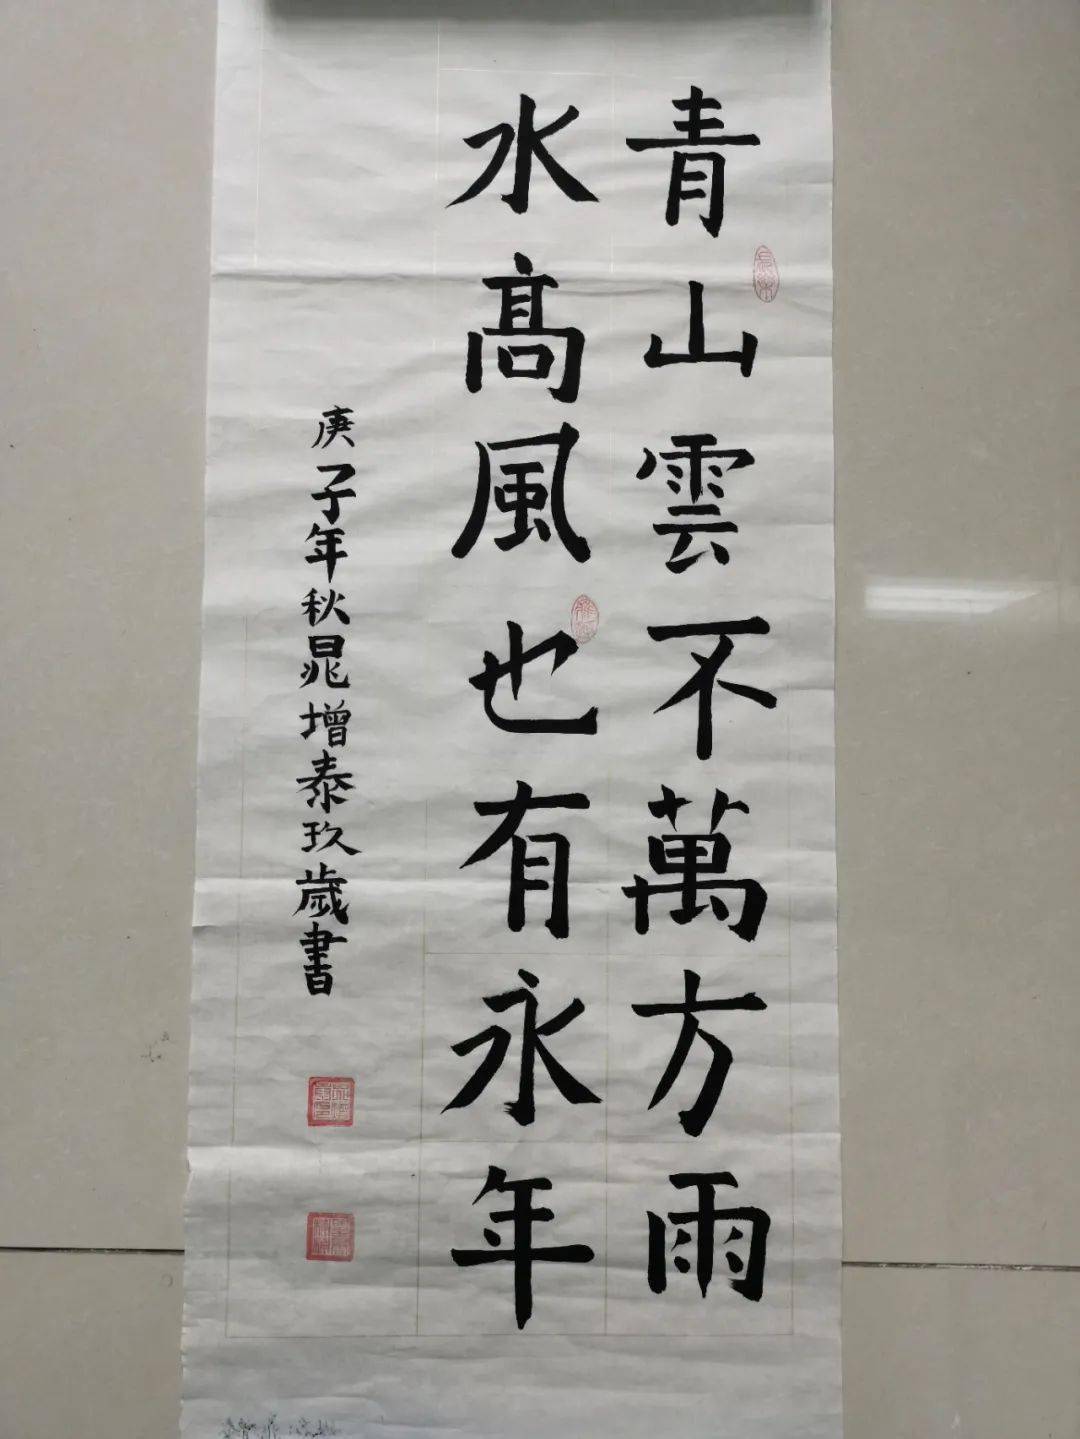 青山雲不萬方雨
水高風也有永年
庚子年秋晁增泰玖歲書